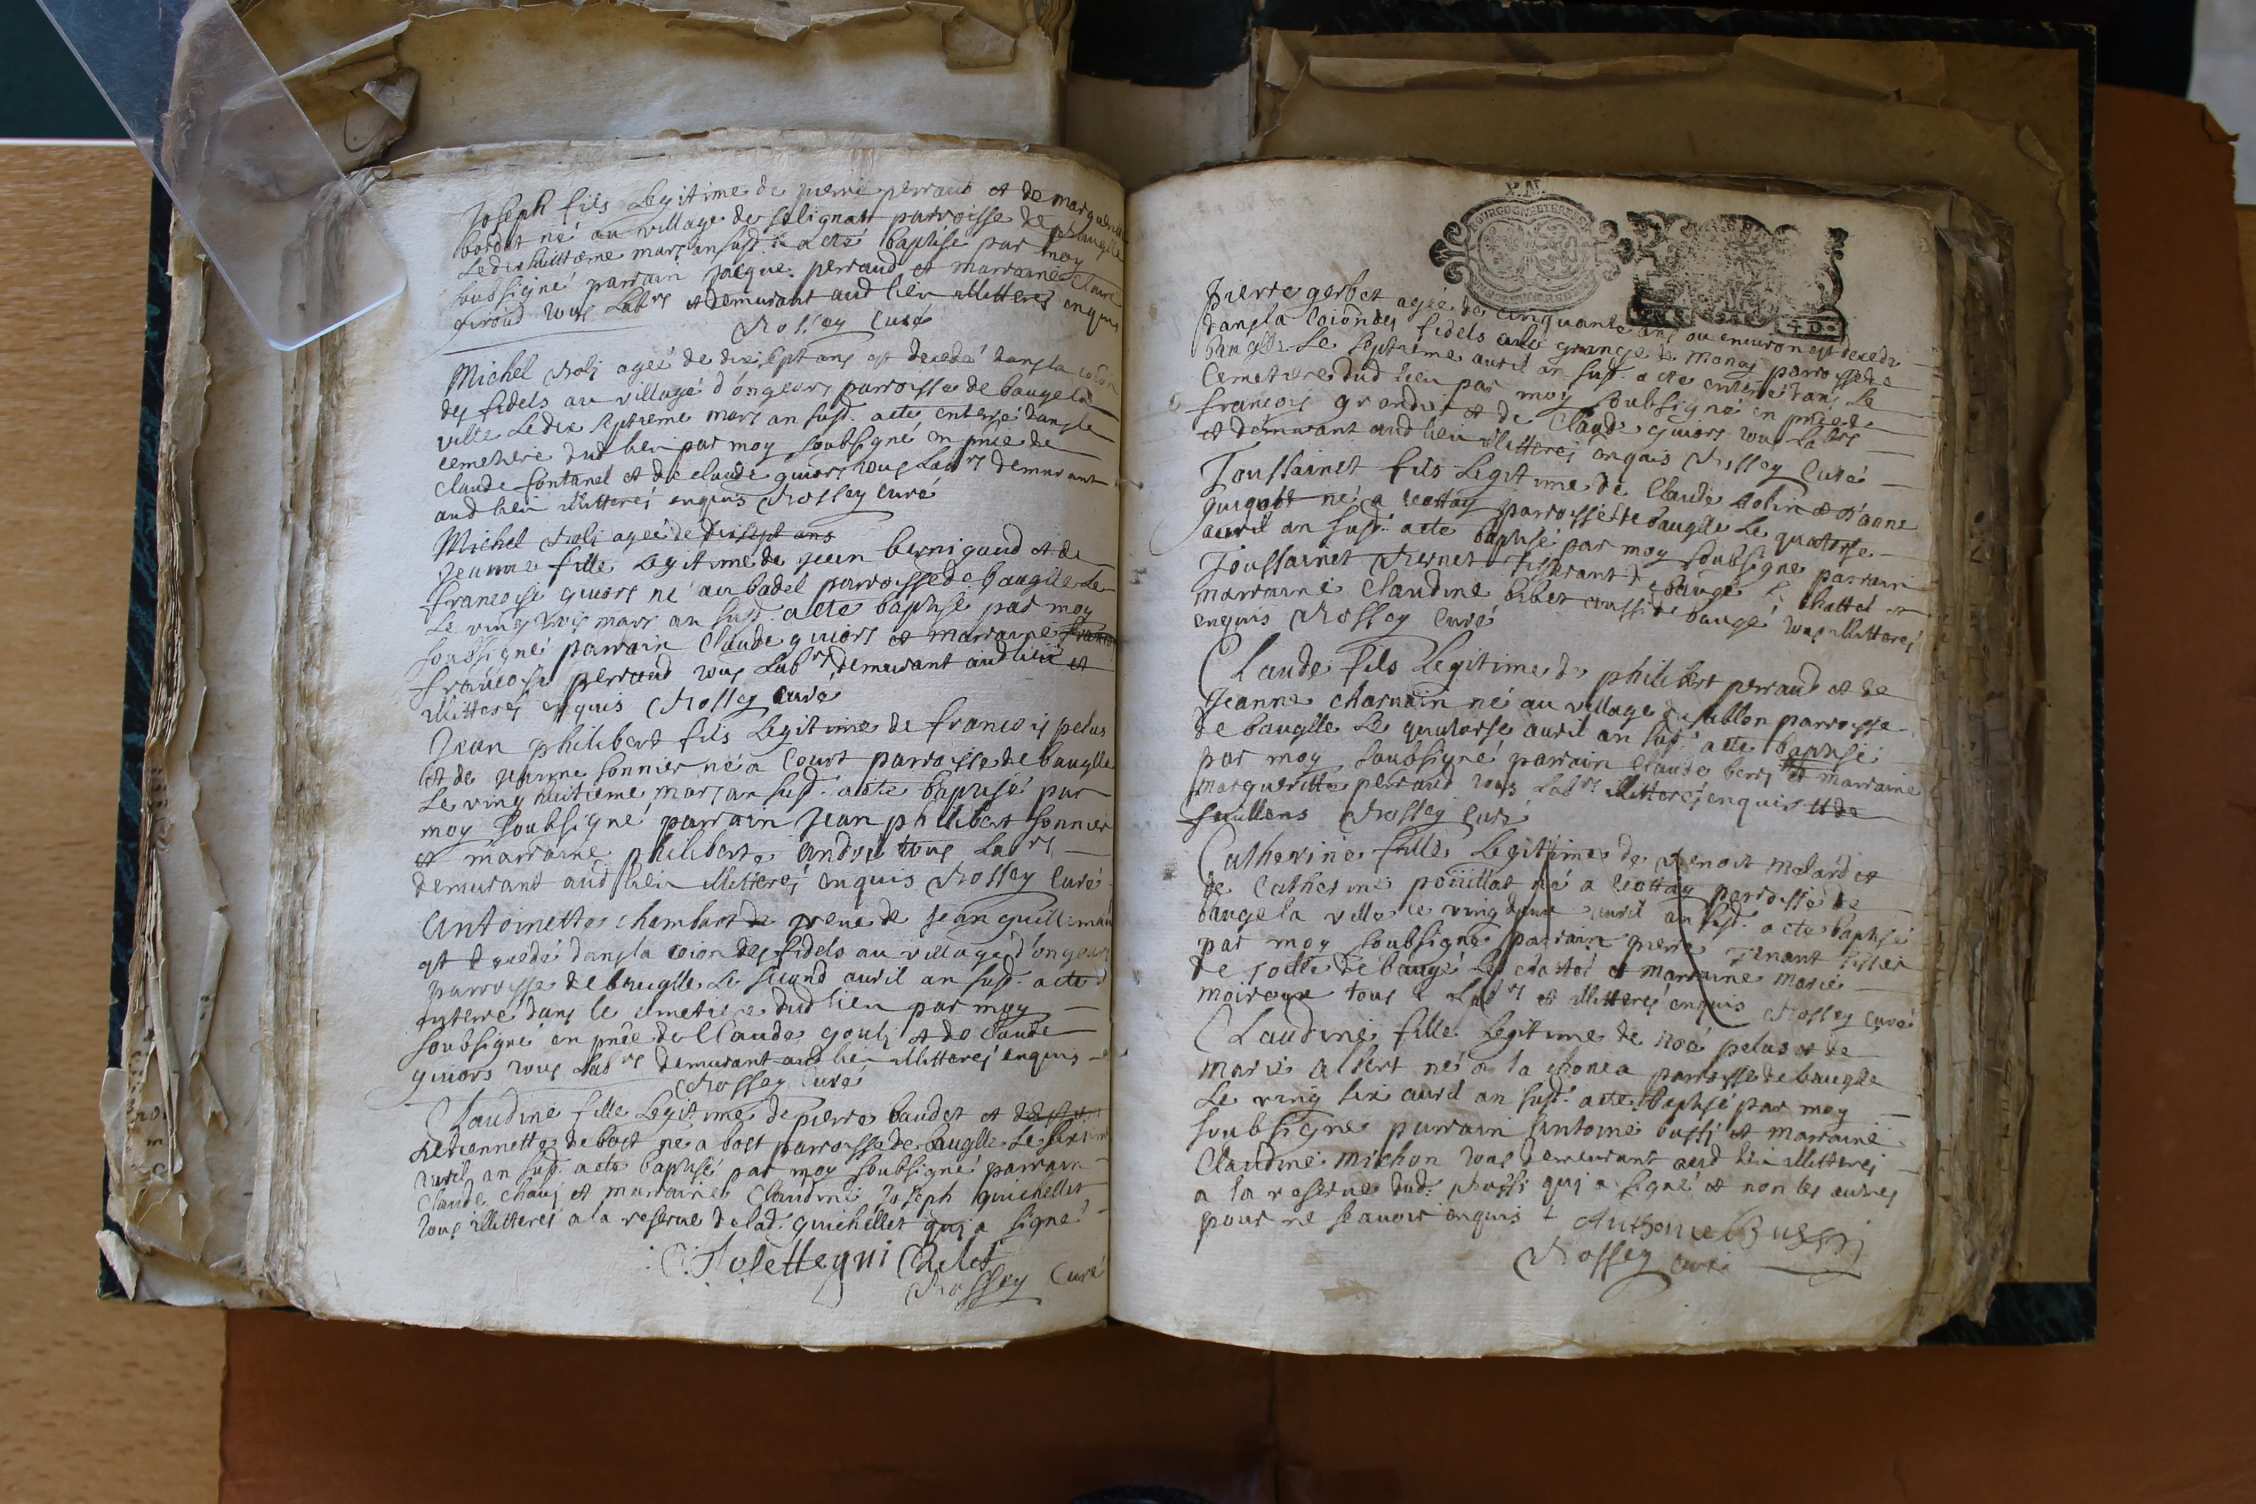 Joseph fils Legitime de pierre perraud et de marguerite
bordat né au village de solignat parroisse de baugella
Le dix huittieme mars an susd. a eté baptisé par moy
soubsigné parrain Jacque perraud et marraine Claire
giroud tous Labrs et demurant aud lieu illitterés enquis
Rossey Curé
Michel Roli ageé de dix sept ans est decedé dans la coion
des fidels au village d'ongeurs parroisse de bauge la
ville Le dix septieme mars an susd. a eté enterré dans le
cemetiere dud lieu par moy soubsigné en pnce de
Claude fontanel et de claude guiors tous Labrs demurant
aud lieu illitterés enquis Rossey curé
Michel Roli ageé de dix sept ans
Jeanne fille Legitime de jean bernigaud et de
francoise guiors né au badel parroisse de baugella
Le ving trois mars an susd. a eté baptisé par moy
soubsigné parrain Claude guiors et marraine
francoise perraud tous Labrs demurant aud lieu et
illitterés enquis Rossey curé
Jean philibert fils Legitime de francois pelus
et de jeanne sonnier né a Court parroisse de baugella
Le ving huitieme mars an susd. a eté baptisé par
moy soubsigné parrain Jean philibert sonnier
et marraine philiberte andré tous Labrs
demurant aud lieu illitterés enquis Rossey Curé
Antoinette chambart de veue de Jean guilleman
est decedé dans la coion des fidels au village d'ongeurs
parroisse de baugella Le second auril an susd. a eté
enterré dans le cimetiere dud lieu par moy
soubsigné en pnce de Claude gouli et de Claude
guiors tous Labrs demurant aud lieu illitterés enquis
Rossey Curé
Claudine fille Legitime de pierre baudet et
de bost né a bost parroisse de baugella Le
auril an susd. a eté baptisé par moy soubsigné parrain
Claude chauj et marraine Claudine Joseph guichellet
tous illitterés a la reserue de lad. guichellet quj a signé
Rossey Curé
pierre gerbet ageé de cinquante ans ou enuiron est decedé
dans la coion des fidels a la grange de monaj parroisse de
baugella Le septieme auril an susd. a eté enterré dans Le
cemetiere dud lieu par moy soubsigné en pnce de
francois grandjet et de Claude guiors tous Labrs
et demurant aud lieu illitterés enquis Rossey Curé
Toussainct fils Legitime de Claude Robin et d'anne
guigout né a cottay parroisse de baugella Le quatorse
auril an susd. a eté baptisé par moy soubsigné parrain
Toussainct tisserant de baugé L chattel et
marraine Claudine bibet aussi de baugé tous illitterés
enquis Rossey Curé
Claude fils Legitime de philibert perraud et de
Jeanne charuain né au village de sullon parroisse
de baugella Le quatorse auril an susd. a eté baptisé
par moy soubsigné parrain Claude berry et marraine
margueritte perraud tous Labrs illitterés enquis et de
Rossey Curé
Catherine fille Legittime de benoit molard et
de Catherine poüillat né a cottay parroisse de
bauge la ville Le ving deux auril an susd. a eté baptisé
par moy soubsigné parrain pierre tenant tissier
de toille de baugé Le chastel et marraine marie
moiroux tous Labrs et illitterés enquis Rossey Curé
Claudine fille Legitime de noé pelus et de
marie albert né a la chonea parroisse de baugella
Le ving six auril an susd. a eté baptisé par moy
soubsigné parrain Antoine bussi et marraine
Claudine michon tous demeurant aud lieu illitterés
a la reserue dud. bussi quj a signé et non les autres
pour ne scauoir enquis
Anthoine Bussy
Rossey Curé